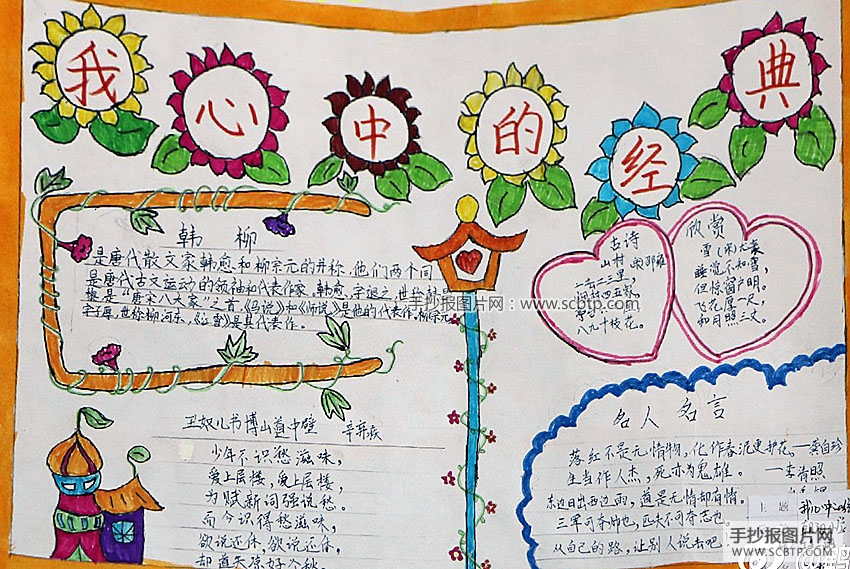 我心中的经典
韩柳
是唐代散文家韩愈和柳宗元的并称,他们两个同
是唐代古文运动的领袖和代表作家。韩愈,字退之,世称
是"唐宋八大家"之首,《马说》和《师说》是他的代表作,柳宗元
字子厚,世称柳河东,《江雪》是其代表作。
手抄报图片网:www.scbtp.com
古诗
山村
一去二三里,
八九十枝花。
欣赏
雪(宋)尤袤
睡觉不知雪,
但惊窗户明。
飞花厚一尺,
和月照三丈。
书博山道中壁 辛弃疾
少年不识愁滋味,
爱上层楼,爱上层楼,
为赋新词强说愁。
而今识得愁滋味,
欲说还休,欲说还休,
却道天凉好个秋
名人名言
落红不是无情物,化作春泥更护花。—龚自珍
生当作人杰,死亦为鬼雄。—李清照
东边日出西边雨,道是无情却有情。
三军可夺帅也,匹夫不可夺志也
从自己的路,让别人说去吧
主题 我心中的经
手抄报图片网
WWW.SCBTP.COM